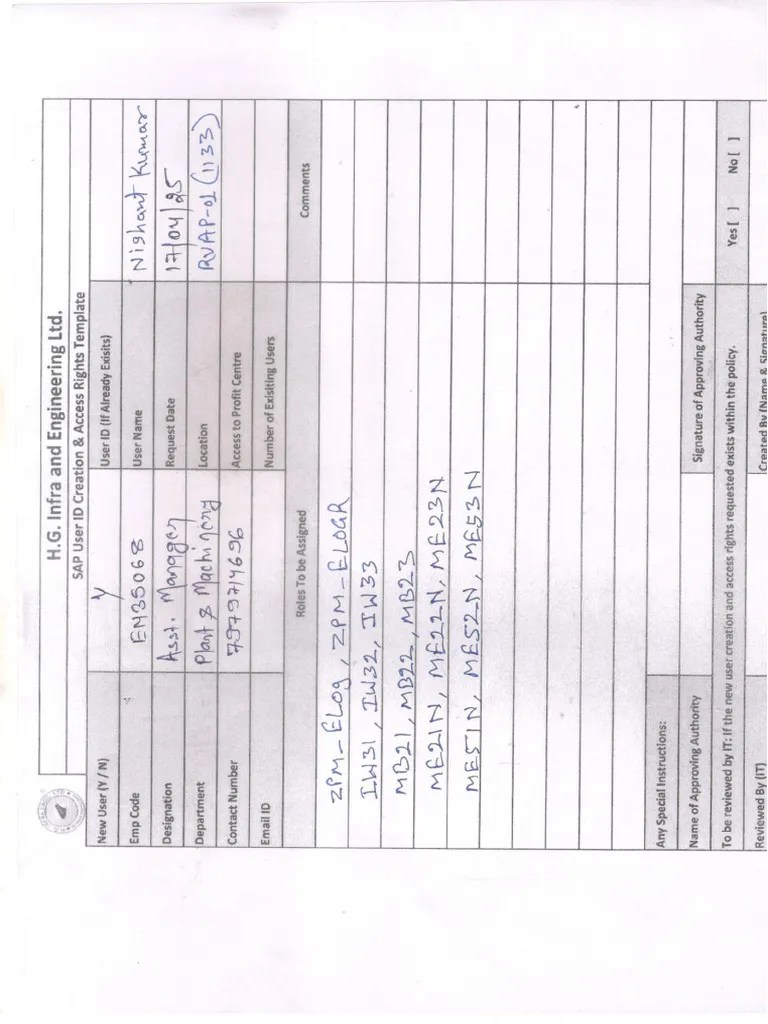 H.G. Infra and Engineering Ltd.
SAP User ID Creation & Access Rights Template
New User (Y / N) Y User ID (If Already Exisits)
Emp Code EM35068 User Name Nishant Kumar
Designation Asst. Manager Request Date 17/04/25
Department Plant & Machinery Location RVAP-01 (1133)
Contact Number 7979714696 Access to Profit Centre
Email ID Number of Exisiting Users
Roles To be Assigned Comments
ZPM-ELOG, ZPM-ELOGR
IW31, IW32, IW33
MB21, MB22, MB23
ME21N, ME22N, ME23N
ME51N, ME52N, ME53N
Any Special Instructions:
Name of Approving Authority Signature of Approving Authority
To be reviewed by IT: If the new user creation and access rights requested exists within the policy. Yes [ ] No [ ]
Reviewed By (IT) Created By (Name & Signature)